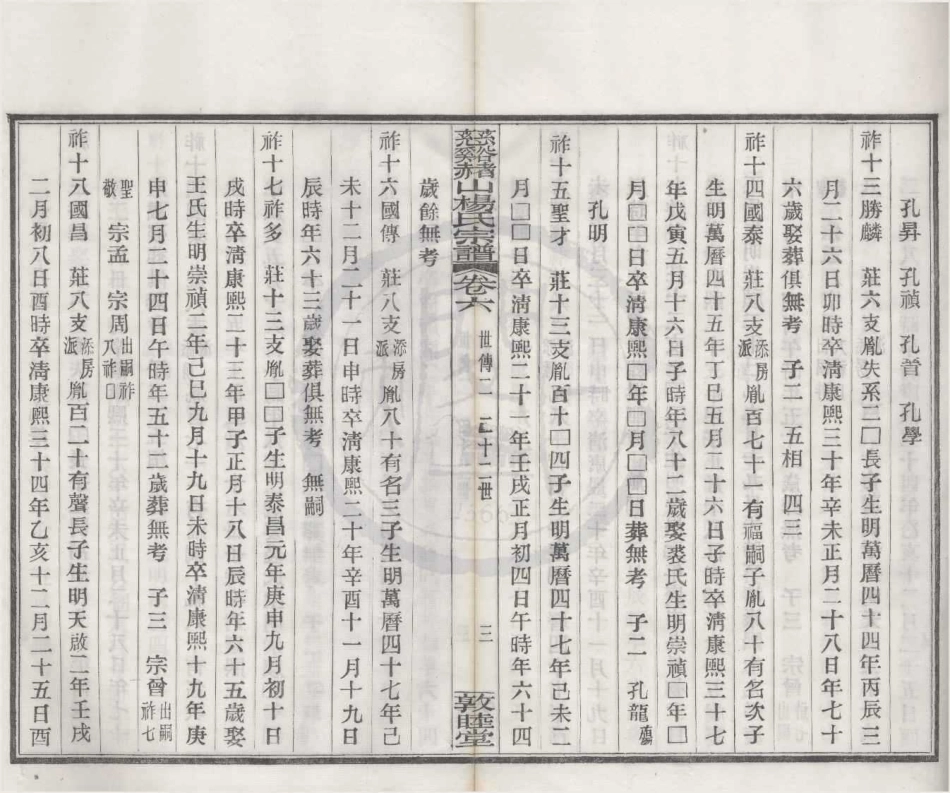 孔昇　孔禎　孔首　孔學
祚十三勝麟　莊六支胤失系三□長子生明萬曆四十四年丙辰三
月二十六日卯時卒淸康熙三十年辛未正月二十八日年七十
六歲娶葬俱無考　子二　五相　四三
祚十四國泰　莊八支添房派胤百七十一有福嗣子胤八十有名次子
生明萬曆四十五年丁巳五月二十六日子時卒淸康熙三十七
年戊寅五月十六日子時年八十二歲娶裘氏生明崇禎□年□
月□□日卒淸康熙□年□月□□日葬無考　子二　孔龍
孔明
祚十五聖才　莊十三支胤百十□四子生明萬曆四十七年己未二
月□□日卒淸康熙二十一年壬戌正月初四日午時年六十四
歲餘無考
慈谿赭山楊氏宗譜　卷六　世傳二　二十二世　三　敦睦堂
祚十六國傳　莊八支添房派胤八十有名三子生明萬曆四十七年己
未十二月二十一日申時卒淸康熙二十年辛酉十一月十九日
辰時年六十三歲娶葬俱無考　無嗣
祚十七祚多　莊十三支胤□□子生明泰昌元年庚申九月初十日
戌時卒淸康熙二十三年甲子正月十八日辰時年六十五歲娶
王氏生明崇禎二年己巳九月十九日未時卒淸康熙十九年庚
申七月二十四日午時年五十二歲葬無考　子三　宗曾出嗣祚七
聖敬　宗孟　宗周出嗣祚八祚□
祚十八國昌　莊八支添房派胤百二十有聲長子生明天啟二年壬戌
二月初八日酉時卒淸康熙三十四年乙亥十二月二十五日酉